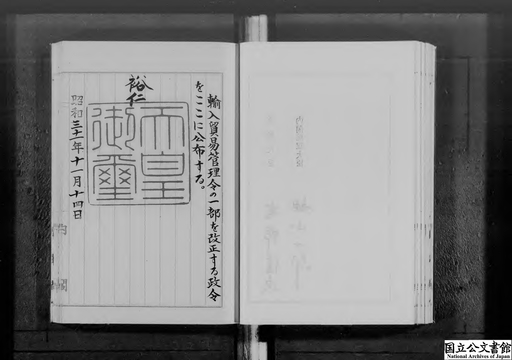 輸入貿易管理令の一部を改正する政令
をここに公布する。
裕仁
天皇
御璽
昭和三十一年十一月十四日
国立公文書館
National Archives of Japan